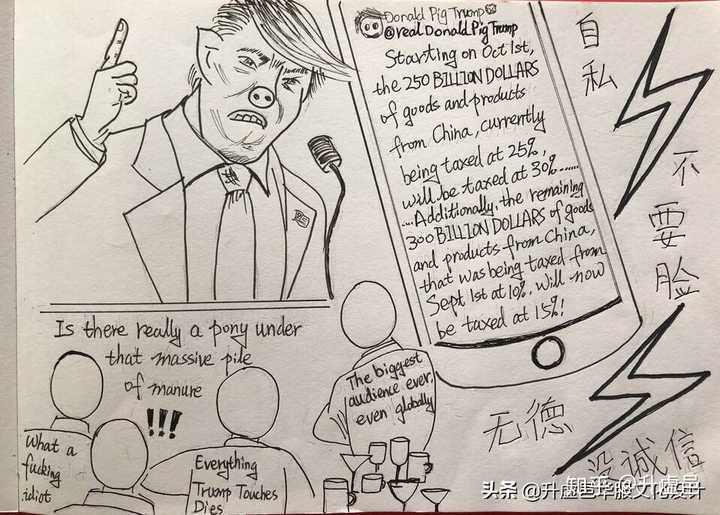 Donald Pig Trump
@realDonaldPigTrump
Starting on Oct 1st,
the 250 BILLION DOLLARS
of goods and products
from China, currently
being taxed at 25%,
will be taxed at 30%......
....Additionally, the remaining
300 BILLION DOLLARS of goods
and products from China,
that was being taxed from
Sept 1st at 10%. Will now
be taxed at 15%!
自私
不要脸
无德
没诚信
Is there really a pony under
that massive pile
of manure
!!!
The biggest
audience ever,
even globally
What a
fucking
idiot
Everything
Trump Touches
Dies
知乎 @升虚邑
头条 @升虚邑华服文化设计